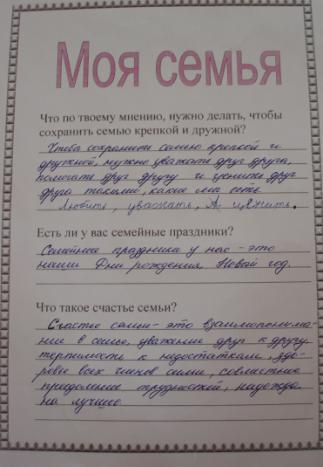 Моя семья
Что по твоему мнению, нужно делать, чтобы
сохранить семью крепкой и дружной?
Чтобы сохранить семью крепкой и
дружной, нужно уважать друг друга,
помогать друг другу и ценить друг
друга такими, какие они есть
Любить, уважать, А, ценить.
Есть ли у вас семейные праздники?
Семейные праздники у нас - это
наши Дни рождения, Новый год.
Что такое счастье семьи?
Счастье семьи - это взаимопонима-
ние в семье, уважение друг к другу,
терпимость к недостаткам, здо-
ровье всех членов семьи, совместное
преодоление трудностей, надежда
на лучшее